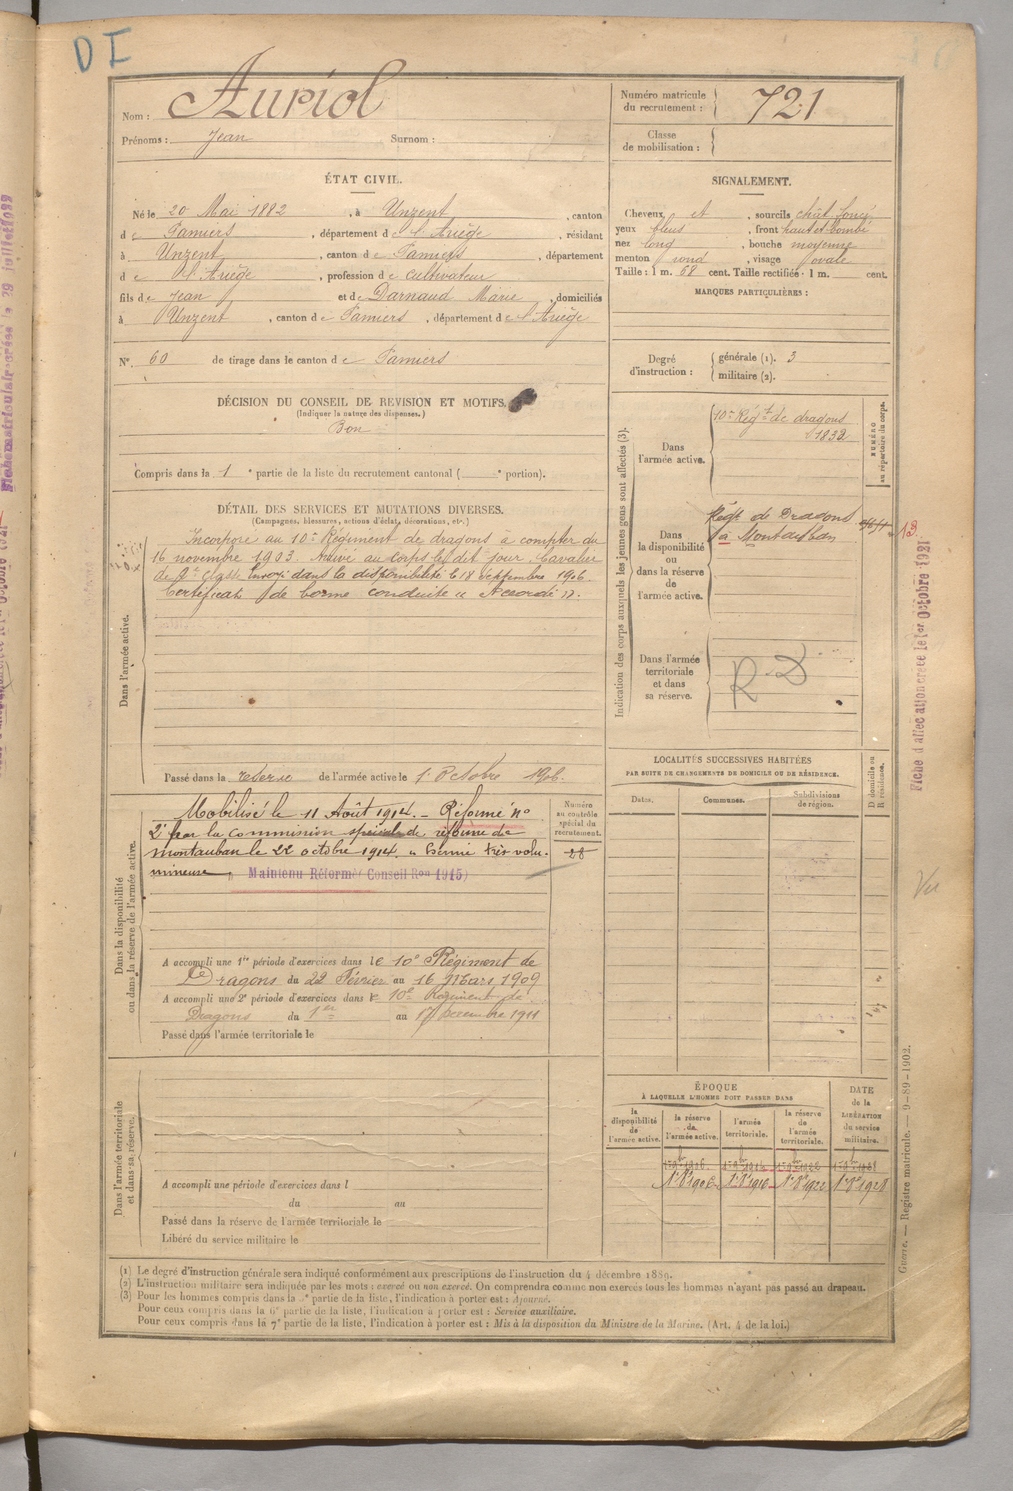 D I
Nom : Auriol
Prénoms : Jean Surnom :
Numéro matricule du recrutement : 721
Classe de mobilisation :
ÉTAT CIVIL.
Né le 20 Mai 1882, à Unzent, canton
de Pamiers, département de l'Ariège, résidant
à Unzent, canton de Pamiers, département
de l'Ariège, profession de cultivateur
fils de Jean et de Darnaud Marie, domiciliés
à Unzent, canton de Pamiers, département de l'Ariège
N° 60 de tirage dans le canton de Pamiers
SIGNALEMENT.
Cheveux et, sourcils chât. foncé,
yeux bleus, front haut et bombé
nez long, bouche moyenne
menton rond, visage ovale
Taille : 1 m. 68 cent. Taille rectifiée : 1 m. cent.
MARQUES PARTICULIÈRES :
Degré d'instruction : générale (1). 3
militaire (2).
DÉCISION DU CONSEIL DE REVISION ET MOTIFS.
(Indiquer la nature des dispenses.)
Bon
Compris dans la 1e partie de la liste du recrutement cantonal ( e portion).
DÉTAIL DES SERVICES ET MUTATIONS DIVERSES.
(Campagnes, blessures, actions d'éclat, décorations, etc.)
Dans l'armée active.
Incorporé au 10e Régiment de dragons à compter du
16 novembre 1903. Arrivé au corps le dit jour Cavalier
de 2e Classe Envoyé dans la disponibilité le 18 Septembre 1906.
Certificat de bonne conduite "Accordé".
Passé dans la réserve de l'armée active le 1er Octobre 1906.
Indication des corps auxquels les jeunes gens sont affectés (3).
Dans l'armée active.
10e Régt de dragons
1832
NUMÉRO au répertoire du corps.
Dans la disponibilité ou dans la réserve de l'armée active.
Régt de Dragons
à Montauban
Dans l'armée territoriale et dans sa réserve.
R D
Dans la disponibilité ou dans la réserve de l'armée active.
Mobilisé le 11 Août 1914. – Réformé n°
2 par la commission spéciale de réforme de
montauban le 22 octobre 1914. "hernie très volu-
mineuse"
Maintenu Réformé (Conseil Ron 1915)
Numéro au contrôle spécial du recrutement.
28
A accompli une 1re période d'exercices dans le 10e Régiment de
Dragons du 22 Février au 16 Mars 1909
A accompli une 2e période d'exercices dans le 10e Régiment de
Dragons du 1er au 17 Décembre 1911
Passé dans l'armée territoriale le
LOCALITÉS SUCCESSIVES HABITÉES
PAR SUITE DE CHANGEMENTS DE DOMICILE OU DE RÉSIDENCE.
Dates. Communes. Subdivisions de région.
D domicile ou R résidence.
Dans l'armée territoriale et dans sa réserve.
A accompli une période d'exercices dans l
du au
Passé dans la réserve de l'armée territoriale le
Libéré du service militaire le
ÉPOQUE
À LAQUELLE L'HOMME DOIT PASSER DANS
la disponibilité de l'armée active.
la réserve de l'armée active.
l'armée territoriale.
la réserve de l'armée territoriale.
DATE de la LIBÉRATION du service militaire.
1er 8e 1906 1er 8e 1916 1er 8e 1922 1er 8e 1928
(1) Le degré d'instruction générale sera indiqué conformément aux prescriptions de l'instruction du 4 décembre 1889.
(2) L'instruction militaire sera indiquée par les mots : exercé ou non exercé. On comprendra comme non exercés tous les hommes n'ayant pas passé au drapeau.
(3) Pour les hommes compris dans la e partie de la liste, l'indication à porter est : Ajourné.
Pour ceux compris dans la 6e partie de la liste, l'indication à porter est : Service auxiliaire.
Pour ceux compris dans la 7e partie de la liste, l'indication à porter est : Mis à la disposition du Ministre de la Marine. (Art. 4 de la loi.)
Fiche d'affectation créée le 1er Octobre 1921
Vu
Guerre. — Registre matricule. — 9-89-1902.